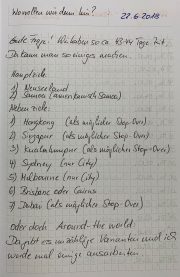 Wo wollen wir denn hin?
22.6.2018
Gute Frage! Wir haben so ca. 43-44 Tage Zeit.
Da kann man so einiges machen.
Hauptziele:
1) Neuseeland
2) Samoa (amerikanisch Samoa)
Nebenziele:
1) Hongkong (als möglicher Stop-Over)
2) Singapur (als möglicher Stop-Over)
3) Kuala Lumpur (als möglicher Stop-Over)
4) Sydney (nur City)
5) Melbourne (nur City)
6) Brisbane oder Cairns
7) Dubai (als möglicher Stop-Over)
oder doch Around-the-world.
Da gibt es unzählige Varianten und ich
werde mal einige ausarbeiten.